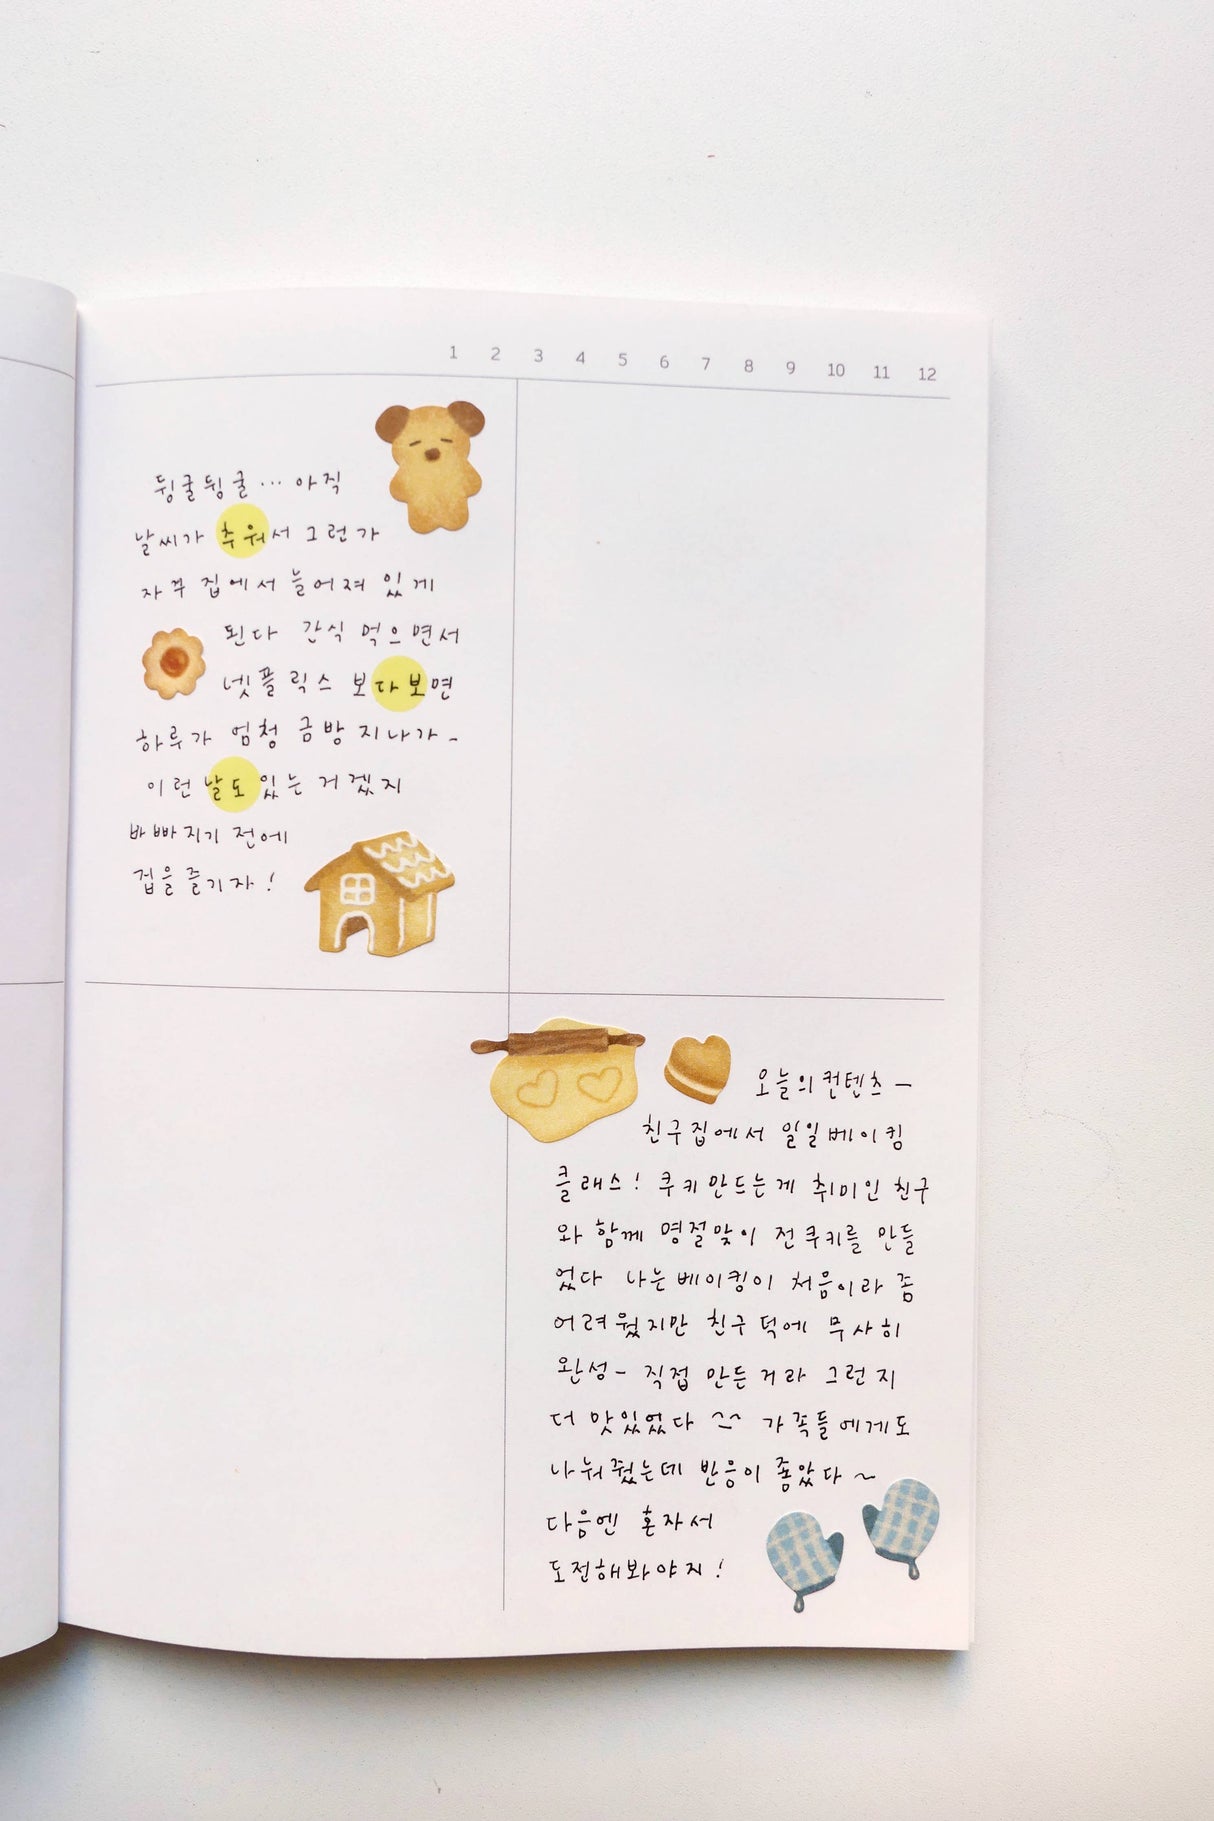 1 2 3 4 5 6 7 8 9 10 11 12
뒹굴뒹굴... 아직
날씨가 추워서 그런가
자꾸 집에서 늘어져 있게
된다 간식 먹으면서
넷플릭스 보다보면
하루가 엄청 금방 지나가-
이런 날도 있는 거겠지
바빠지기 전에
겁을 즐기자!
오늘의 컨텐츠 -
친구집에서 일일베이킹
클래스! 쿠키 만드는게 취미인 친구
와 함께 명절맞이 전쿠키를 만들
었다 나는 베이킹이 처음이라 좀
어려웠지만 친구 덕에 무사히
완성- 직접 만든거라 그런지
더 맛있었다 ^^ 가족들에게도
나눠줬는데 반응이 좋았다~
다음엔 혼자서
도전해봐야지!